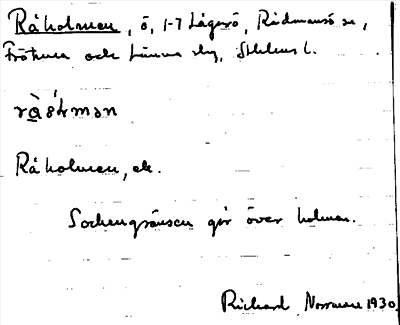 Råholmen, ö, 1-7 Lågarö, Rådmansö sn,
Frötuna och Länna skg, Sthlms l.
Råholmen, ek.
Sockengränsen går över holmen.
Richard Norrman 1930.